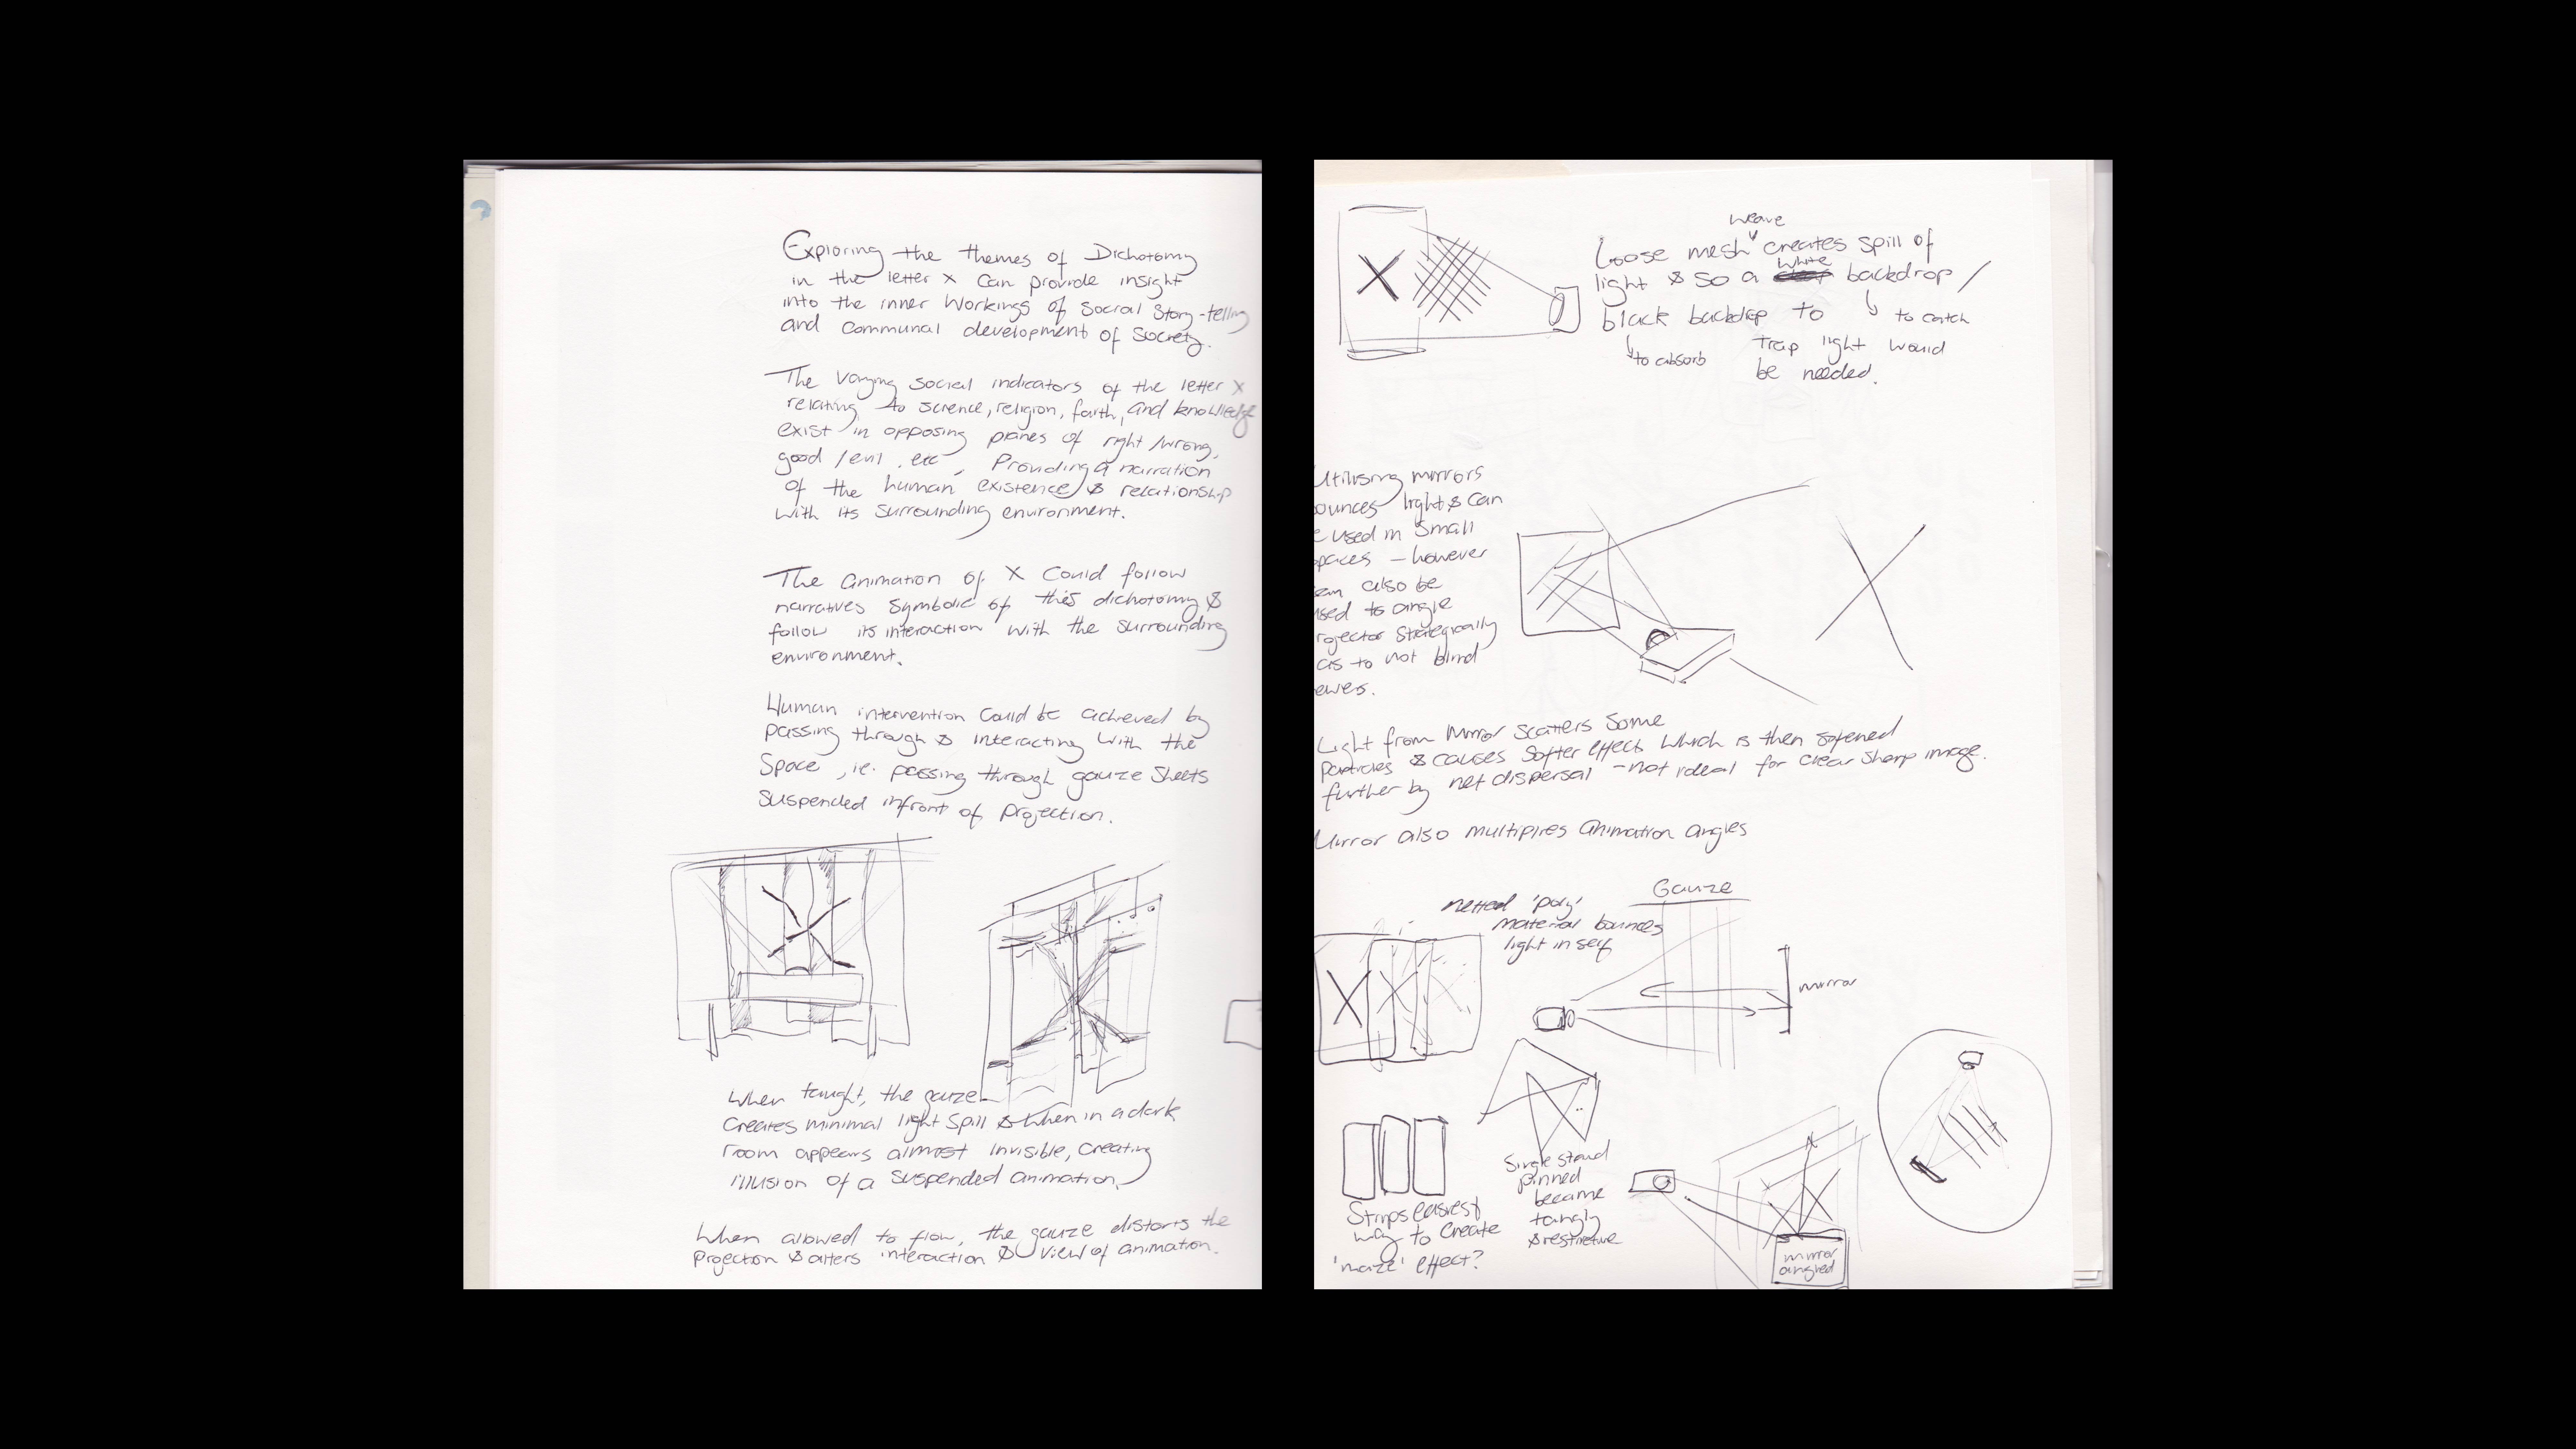 Exploring the themes of Dichotomy
in the letter X can provide insight
into the inner workings of social story-telling
and communal development of society.
The varying social indicators of the letter X
relating to science, religion, faith, and knowledge
exist in opposing planes of right/wrong,
good/evil, etc, Providing a narration
of the human existence & relationship
with its surrounding environment.
The animation of X could follow
narratives symbolic of this dichotomy &
follow its interaction with the surrounding
environment.
Human intervention could be achieved by
passing through & interacting with the
space, ie. passing through gauze sheets
suspended infront of projection.
When taught, the gauze
creates minimal light spill & when in a dark
room appears almost invisible, creating
illusion of a suspended animation.
When allowed to flow, the gauze distorts the
projection & alters interaction & view of animation.
weave
Loose mesh creates spill of
white
light & so a backdrop /
black backdrop to
to catch
to absorb
trap light would
be needed.
Utilising mirrors
bounces light & can
e used in small
paces - however
can also be
used to angle
rojector strategically
as to not blind
ewers.
Light from mirror scatters some
particles & causes softer effect which is then softened
further by net dispersal - not ideal for clear sharp image.
Mirror also multiplies animation angles
netted 'poly'
material bounces
light in self
Gauze
mirror
Strips easiest
way to create
'maze' effect?
Single strand
pinned
became
tangly
& restrictive
mirror
angled